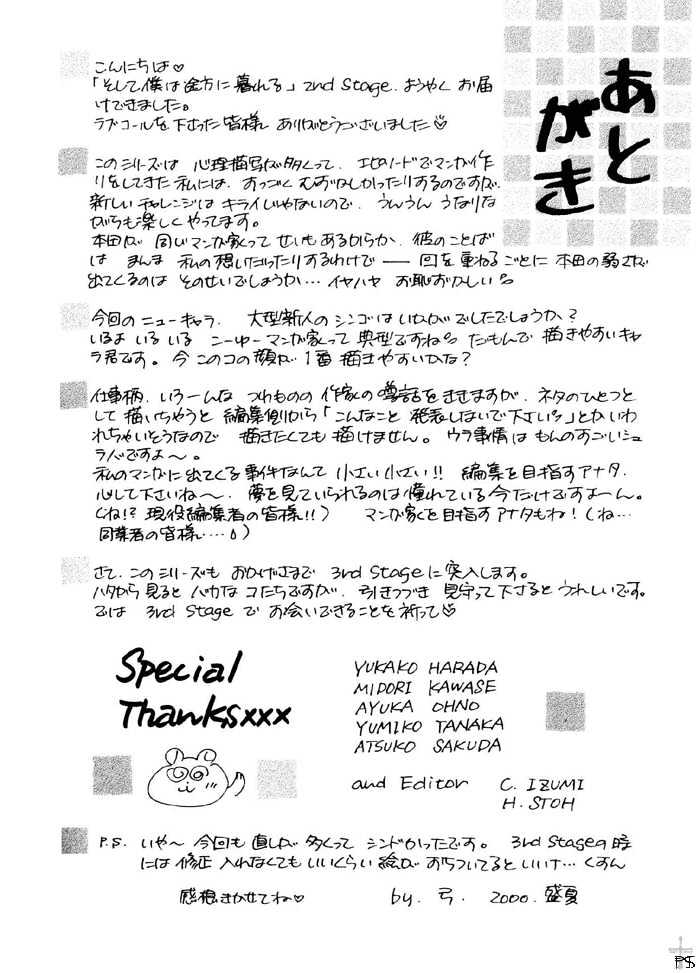 あとがき
こんにちは♡
「そして僕は途方に暮れる」2nd Stage. ようやく お届
けできました。
ラブコールを下さった皆様 ありがとうございました♡
このシリーズは 心理描写が多くって、エピソードでマンガ作
りをしてきた私には、すっごく むずかしかったりするのですが、
新しい チャレンジは キライじゃないので、うんうん うなりな
がらも楽しくやってます。
本田が 同じマンガ家って せいもあるからか、彼のことば
は まんま 私の想いだったりするわけで ── 回を重ねるごとに 本田の弱さが
出てくるのは そのせいでしょうか… イヤハヤ お恥ずかしい
今回のニューキャラ. 大型新人のシンゴはいかがでしたでしょうか?
いるよ いる いる こーゆーマンガ家って 典型ですね だもんで 描きやすいキャ
ラ君です。今 このコの顔が 1番 描きやすいかな?
仕事柄、いろーんな つわものの 作家の噂話をききますが、ネタのひとつと
して描いちゃうと 編集側から「こんなこと 発表しないで下さい」とかいわ
れちゃいそうなので 描きたくても描けません。ウラ事情は もんのすごいシュ
ラバですよ〜。
私のマンガに出てくる事件なんて 小さい小さい!! 編集を目指すアナタ、
心して下さいね〜、夢を見ていられるのは憧れている今だけですよーん。
(ね!? 現役編集者の皆様!!) マンガ家を目指すアナタもね! (ね…
同業者の皆様…)
さて、このシリーズも おかげさまで 3rd Stageに突入します。
ハタから見ると バカな コたちですが、引きつづき 見守って下さるとうれしいです。
では 3rd Stage で お会いできることを祈って♡
Special
Thanksxxx
YUKAKO HARADA
MIDORI KAWASE
AYUKA OHNO
YUMIKO TANAKA
ATSUKO SAKUDA
and Editor C. IZUMI
H. STOH
P.S. いや〜 今回も 直しが 多くって シンドかったです。 3rd Stageの時
には 修正 入れなくても いいくらい 絵が おちついてるといいけ… くすん
感想きかせてね♡ by. 弓. 2000. 盛夏
P.S.